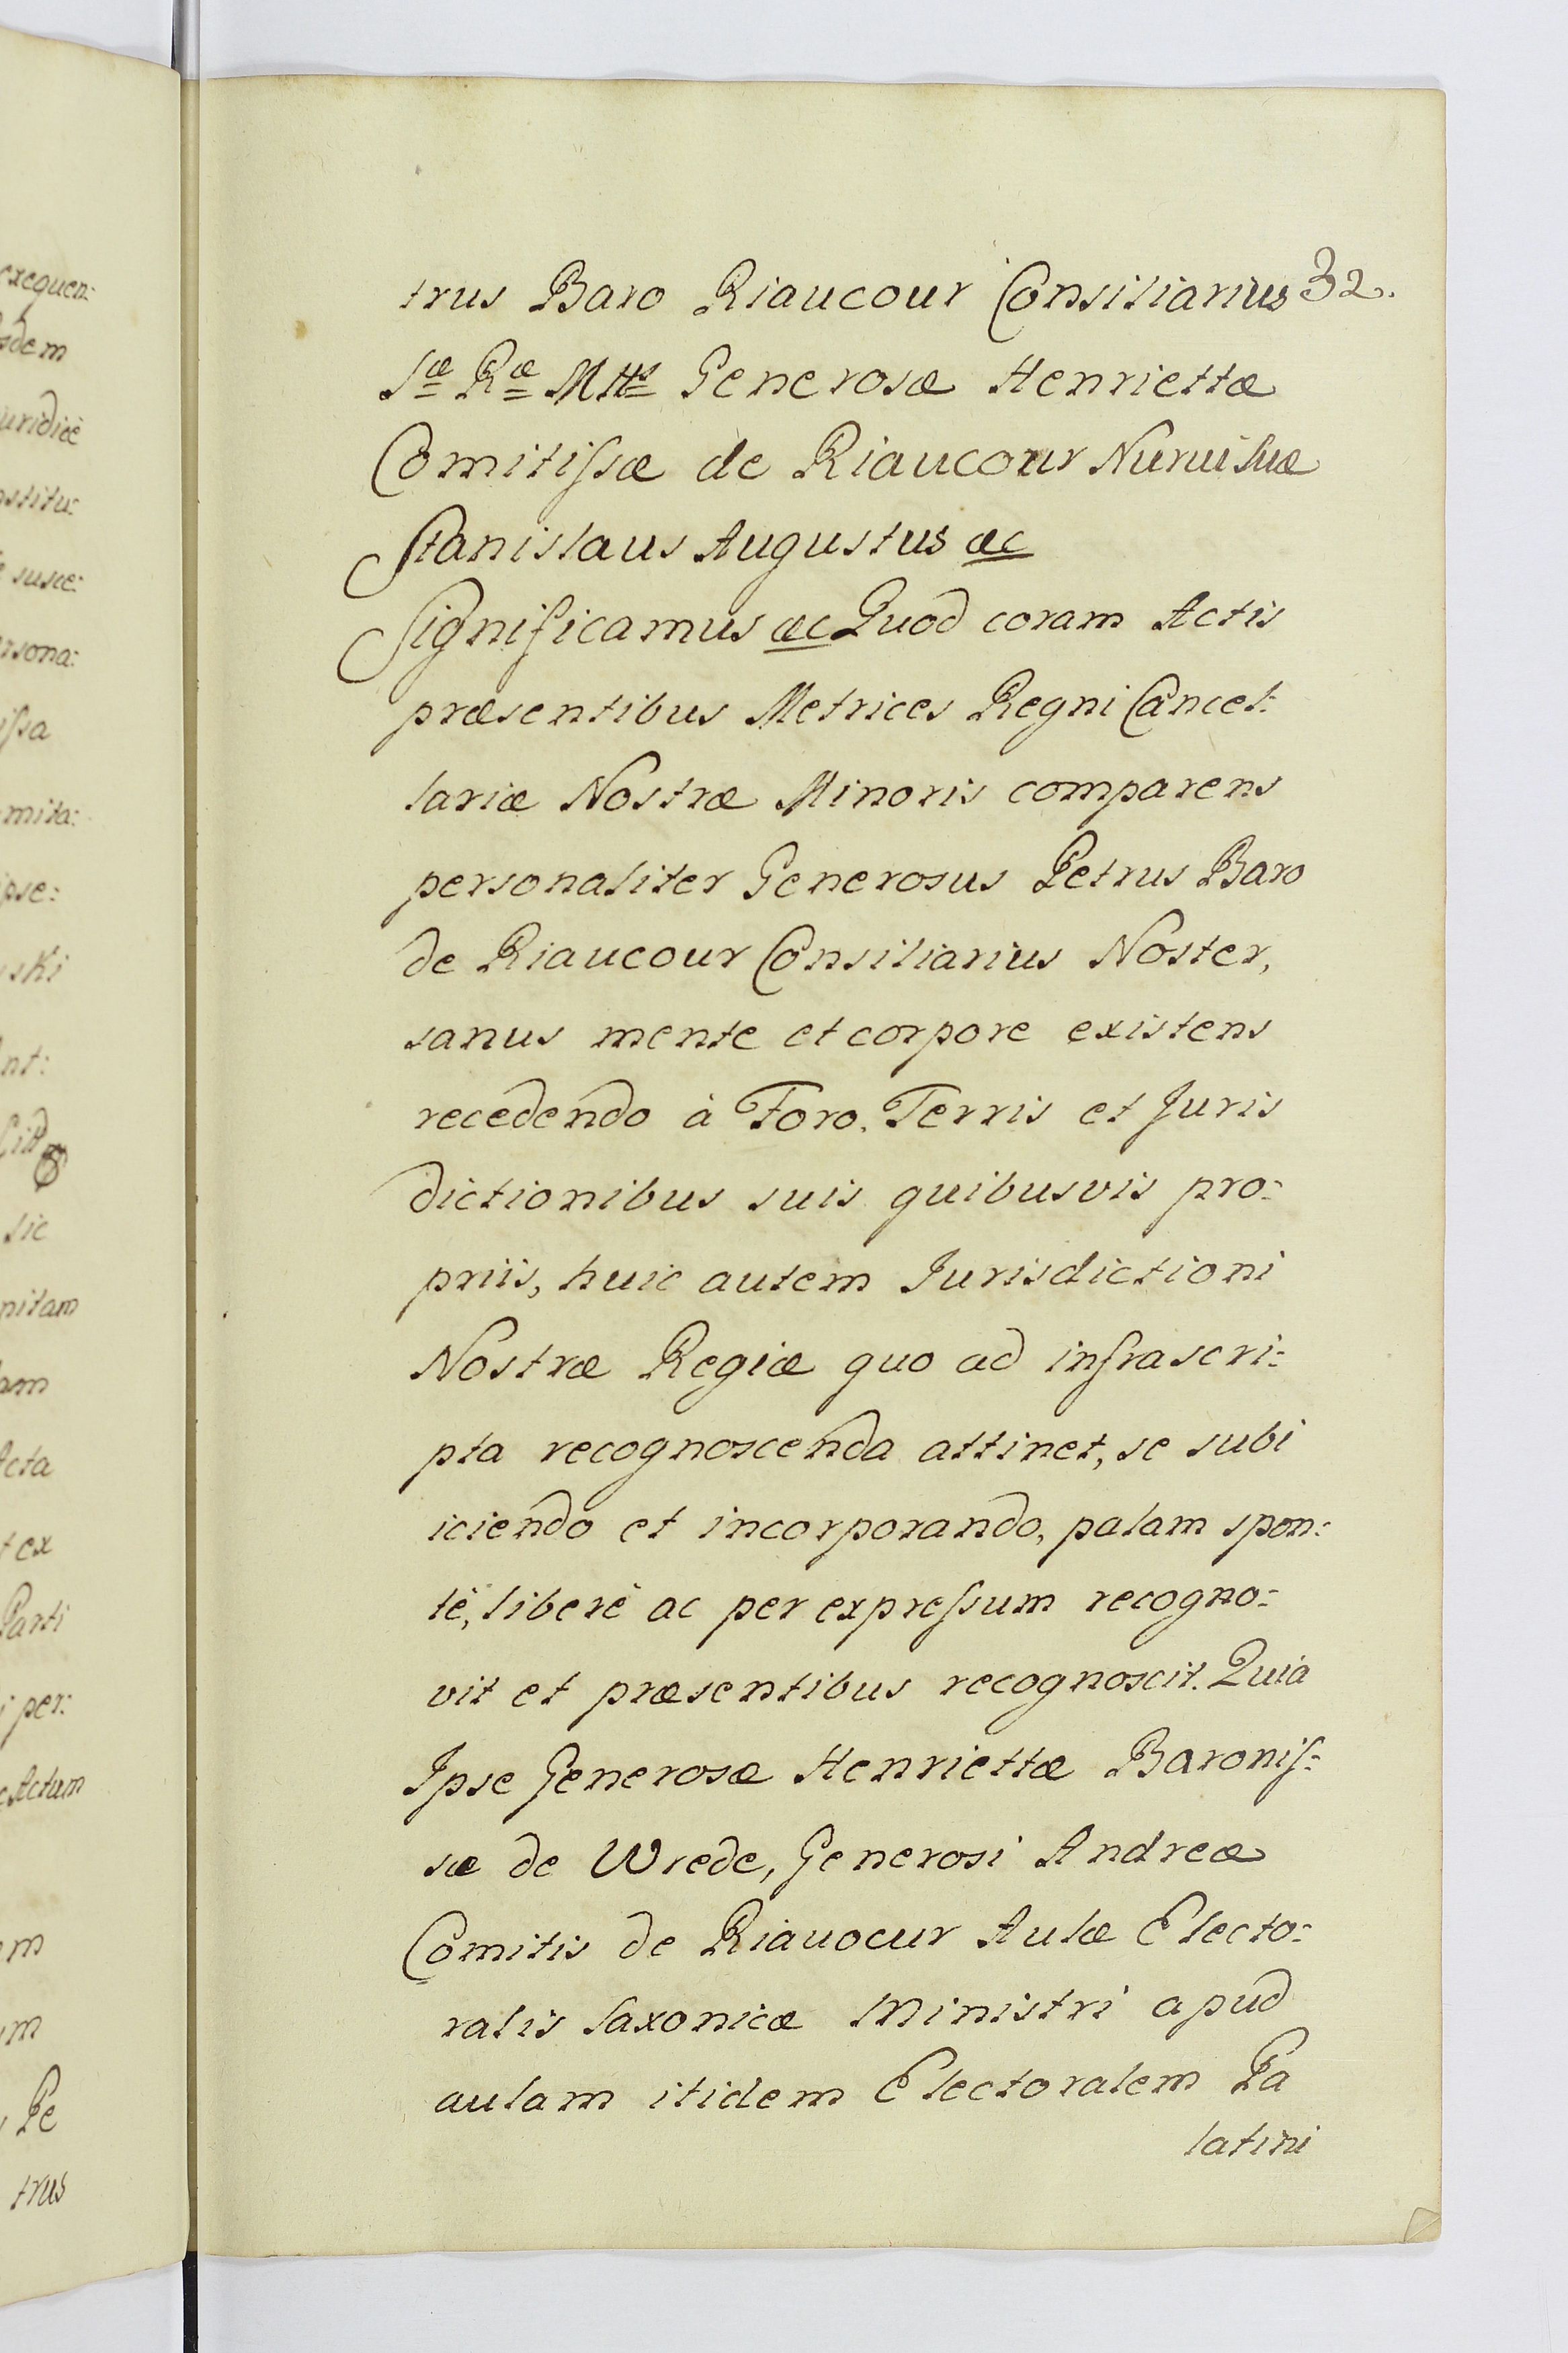 exequen:
sdem
uridicè
nstitu:
susce:
ersona:
issa
mita:
pse:
ski
nt:
sic
nitam
am
Acta
t ex
Parti
i per:
Actum
m
m
Pe
trus
32.
trus Baro Riaucour Consiliarius
Sæ Ræ Mttis Generosæ Henriettæ
Comitissæ de Riaucour Nurui suæ
Stanislaus Augustus æc
Significamus æc Quod coram Actis
præsentibus Metrices Regni Cancel:
lariæ Nostræ Minoris comparens
personaliter Generosus Petrus Baro
de Riaucour Consiliarius Noster,
sanus mente et corpore existens
recedendo à Foro, Terris et Juris
dictionibus suis quibusvis pro:
priis, huic autem Jurisdictioni
Nostræ Regiæ quo ad infrascri:
pta recognoscenda attinet, se subi
iciendo et incorporando, palam spon:
tè, liberè ac per expressum recogno:
vit et præsentibus recognoscit. Quia
Ipse Generosæ Henriettæ Baronis:
sæ de Wrede, Generosi Andreæ
Comitis de Riauocur Aulæ Electo:
ralis Saxonicæ Ministri apud
aulam itidem Electoralem Pa
latini